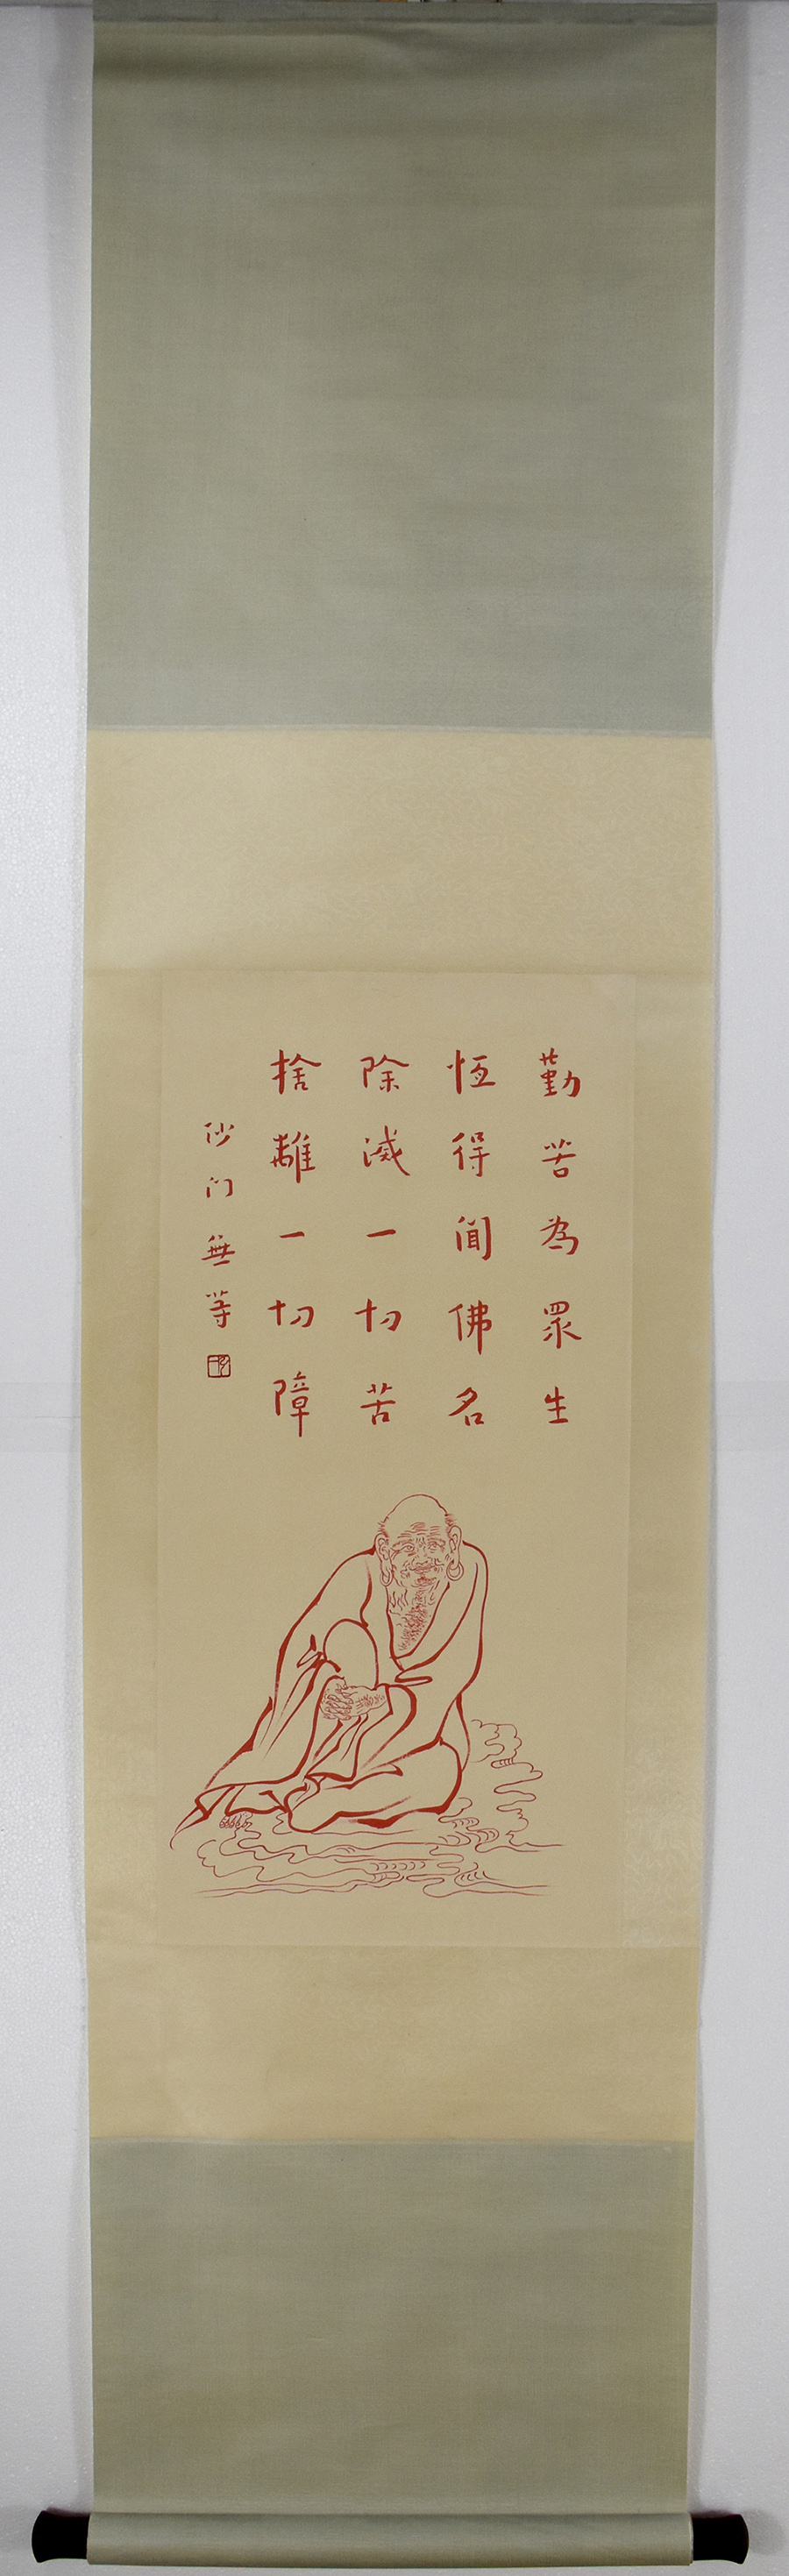 勤苦為眾生
恆得聞佛名
除滅一切苦
捨離一切障
沙门無等